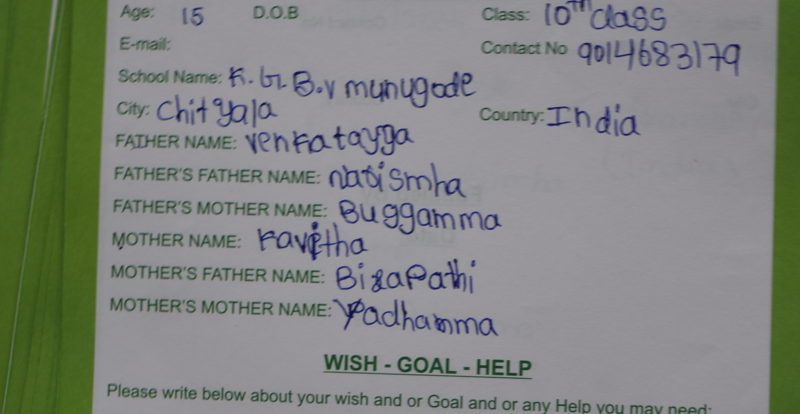 Age: 15 D.O.B Class: 10th class
E-mail: Contact No 9014683179
School Name: K.G.B.V munugode
City: Chityala Country: India
FATHER NAME: Venkatayga
FATHER'S FATHER NAME: nalismha
FATHER'S MOTHER NAME: Buggamma
MOTHER NAME: Kavitha
MOTHER'S FATHER NAME: Bizapathi
MOTHER'S MOTHER NAME: Yadhamma
WISH - GOAL - HELP
Please write below about your wish and or Goal and or any Help you may need: